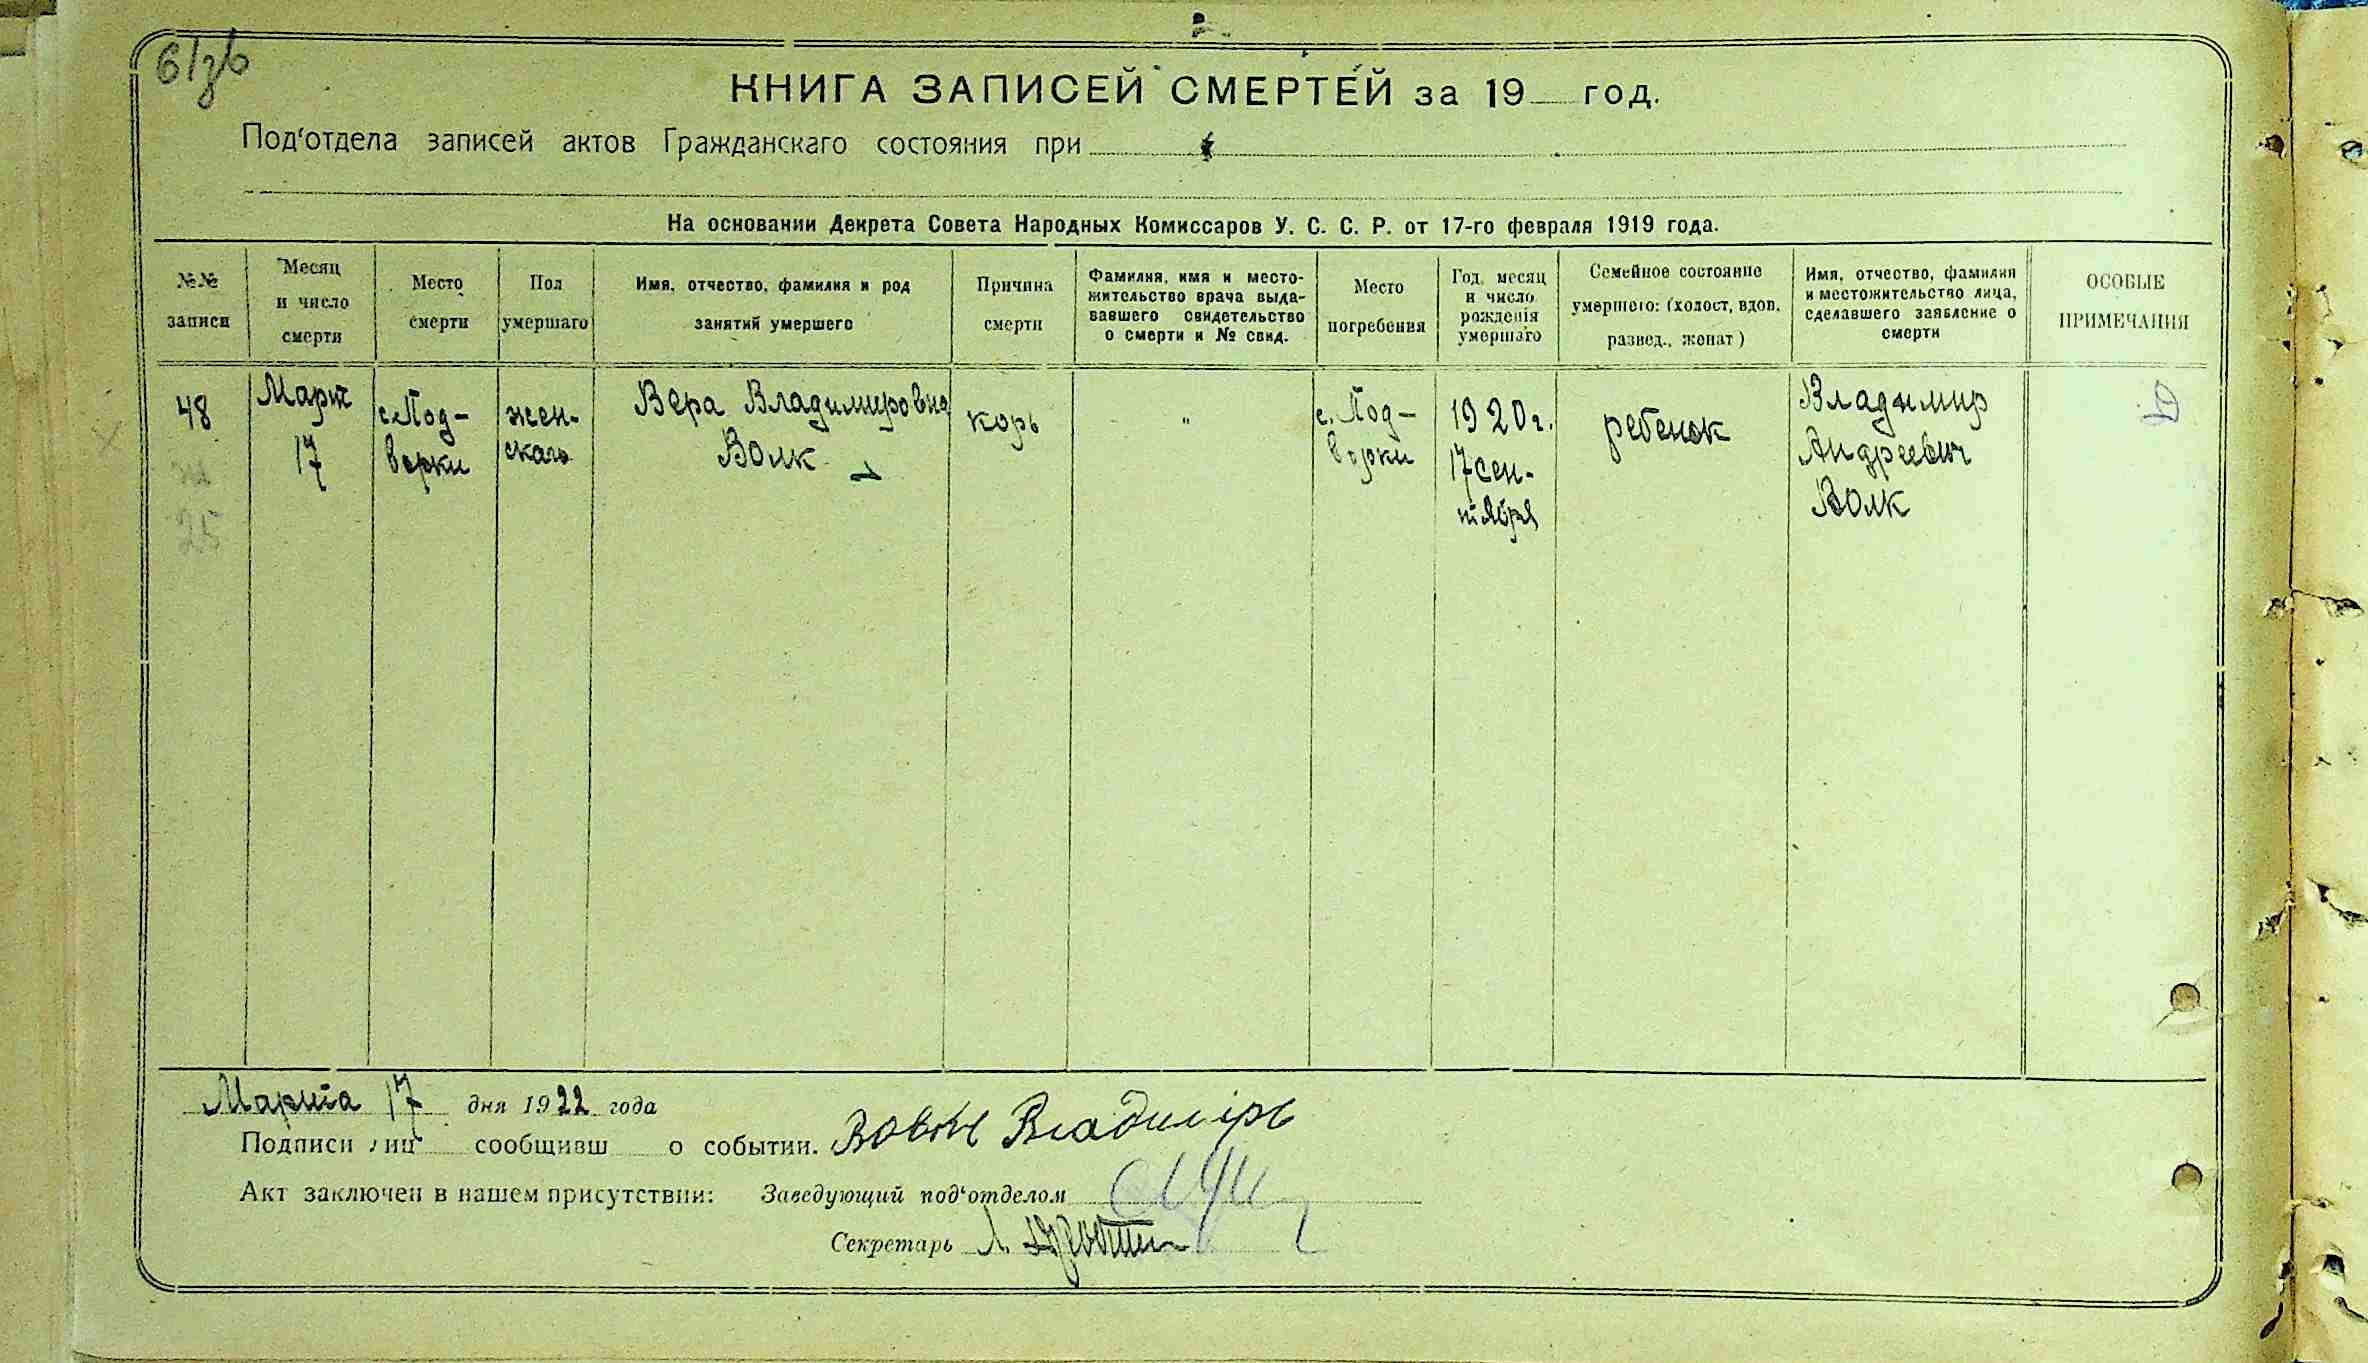 КНИГА ЗАПИСЕЙ СМЕРТЕЙ за 19 год.
Под'отдела записей актов Гражданскаго состояния при
На основании Декрета Совета Народных Комиссаров У. С. С. Р. от 17-го февраля 1919 года.
№№
записи
Месяц
и число
смерти
Место
смерти
Пол
умершаго
Имя, отчество, фамилия и род
занятий умершего
Причина
смерти
Фамилия, имя и место-
жительство врача выда-
вавшего свидетельство
о смерти и № свид.
Место
погребения
Год, месяц
и число
рождения
умершаго
Семейное состояние
умершего: (холост, вдов,
развед., женат)
Имя, отчество, фамилия
и местожительство лица,
сделавшего заявление о
смерти
ОСОБЫЕ
ПРИМЕЧАНИЯ
48
25
Март
17
с. Под-
ворки
жен-
скаго
Вера Владимировна
Волк
корь
"
с. Под-
ворки
1920 г.
17 сен-
тября
ребенок
Владимир
Андреевич
Волк
Марта 17 дня 1922 года
Подписи лиц сообщивш о событии. Вовк Владимiръ
Акт заключен в нашем присутствии: Заведующий под'отделом
Секретарь Л.